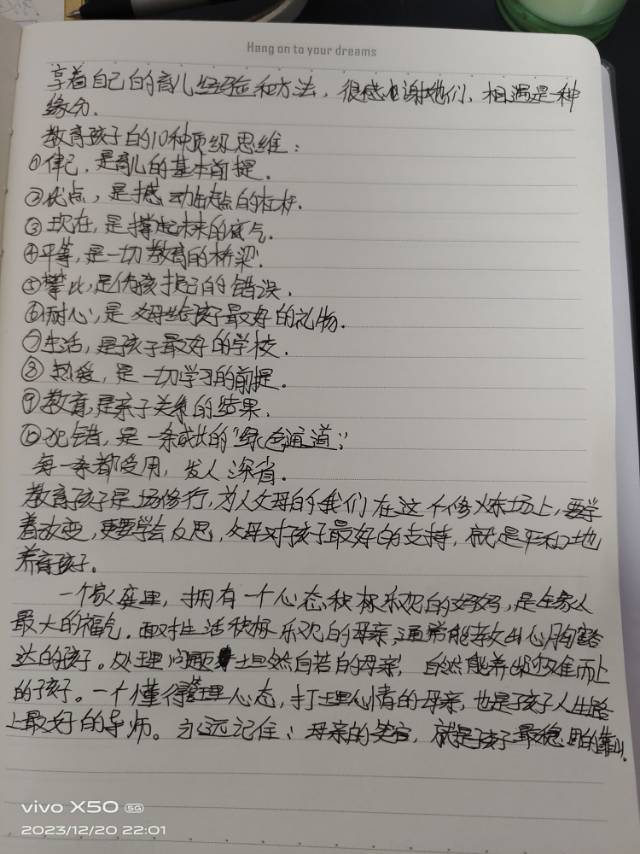 Hang on to your dreams
享着自己的育儿经验和方法，很感谢她们，相遇是一种
缘分.
教育孩子的10种顶级思维：
①律己，是育儿的基本前提.
②优点，是撬动缺点的杠杆.
③现在，是撑起未来的底气.
④平等，是一切教育的桥梁.
⑤攀比，是伤孩子的错误.
⑥耐心，是父母给孩子最好的礼物.
⑦生活，是孩子最好的学校.
⑧热爱，是一切学习的前提.
⑨教育，是亲子关系的结果.
⑩犯错，是一条成长的"绿色通道；"
每一条都受用，发人深省.
教育孩子是场修行，为人父母的我们在这个修炼场上，要学
着改变，更要学会反思，父母对孩子最好的支持，就是平和地
养育孩子.
一个家庭里，拥有一个心态积极乐观的妈妈，是全家人
最大的福气。面对生活积极乐观的母亲，通常能教出心胸豁
达的孩子。处理问题坦然自若的母亲，自然能养出迎难而上
的孩子。一个懂得管理心态，打理心情的母亲，也是孩子人生路
上最好的导师。永远记住：母亲的笑容，就是孩子最稳固的靠山.
vivo X50 5G
2023/12/20 22:01